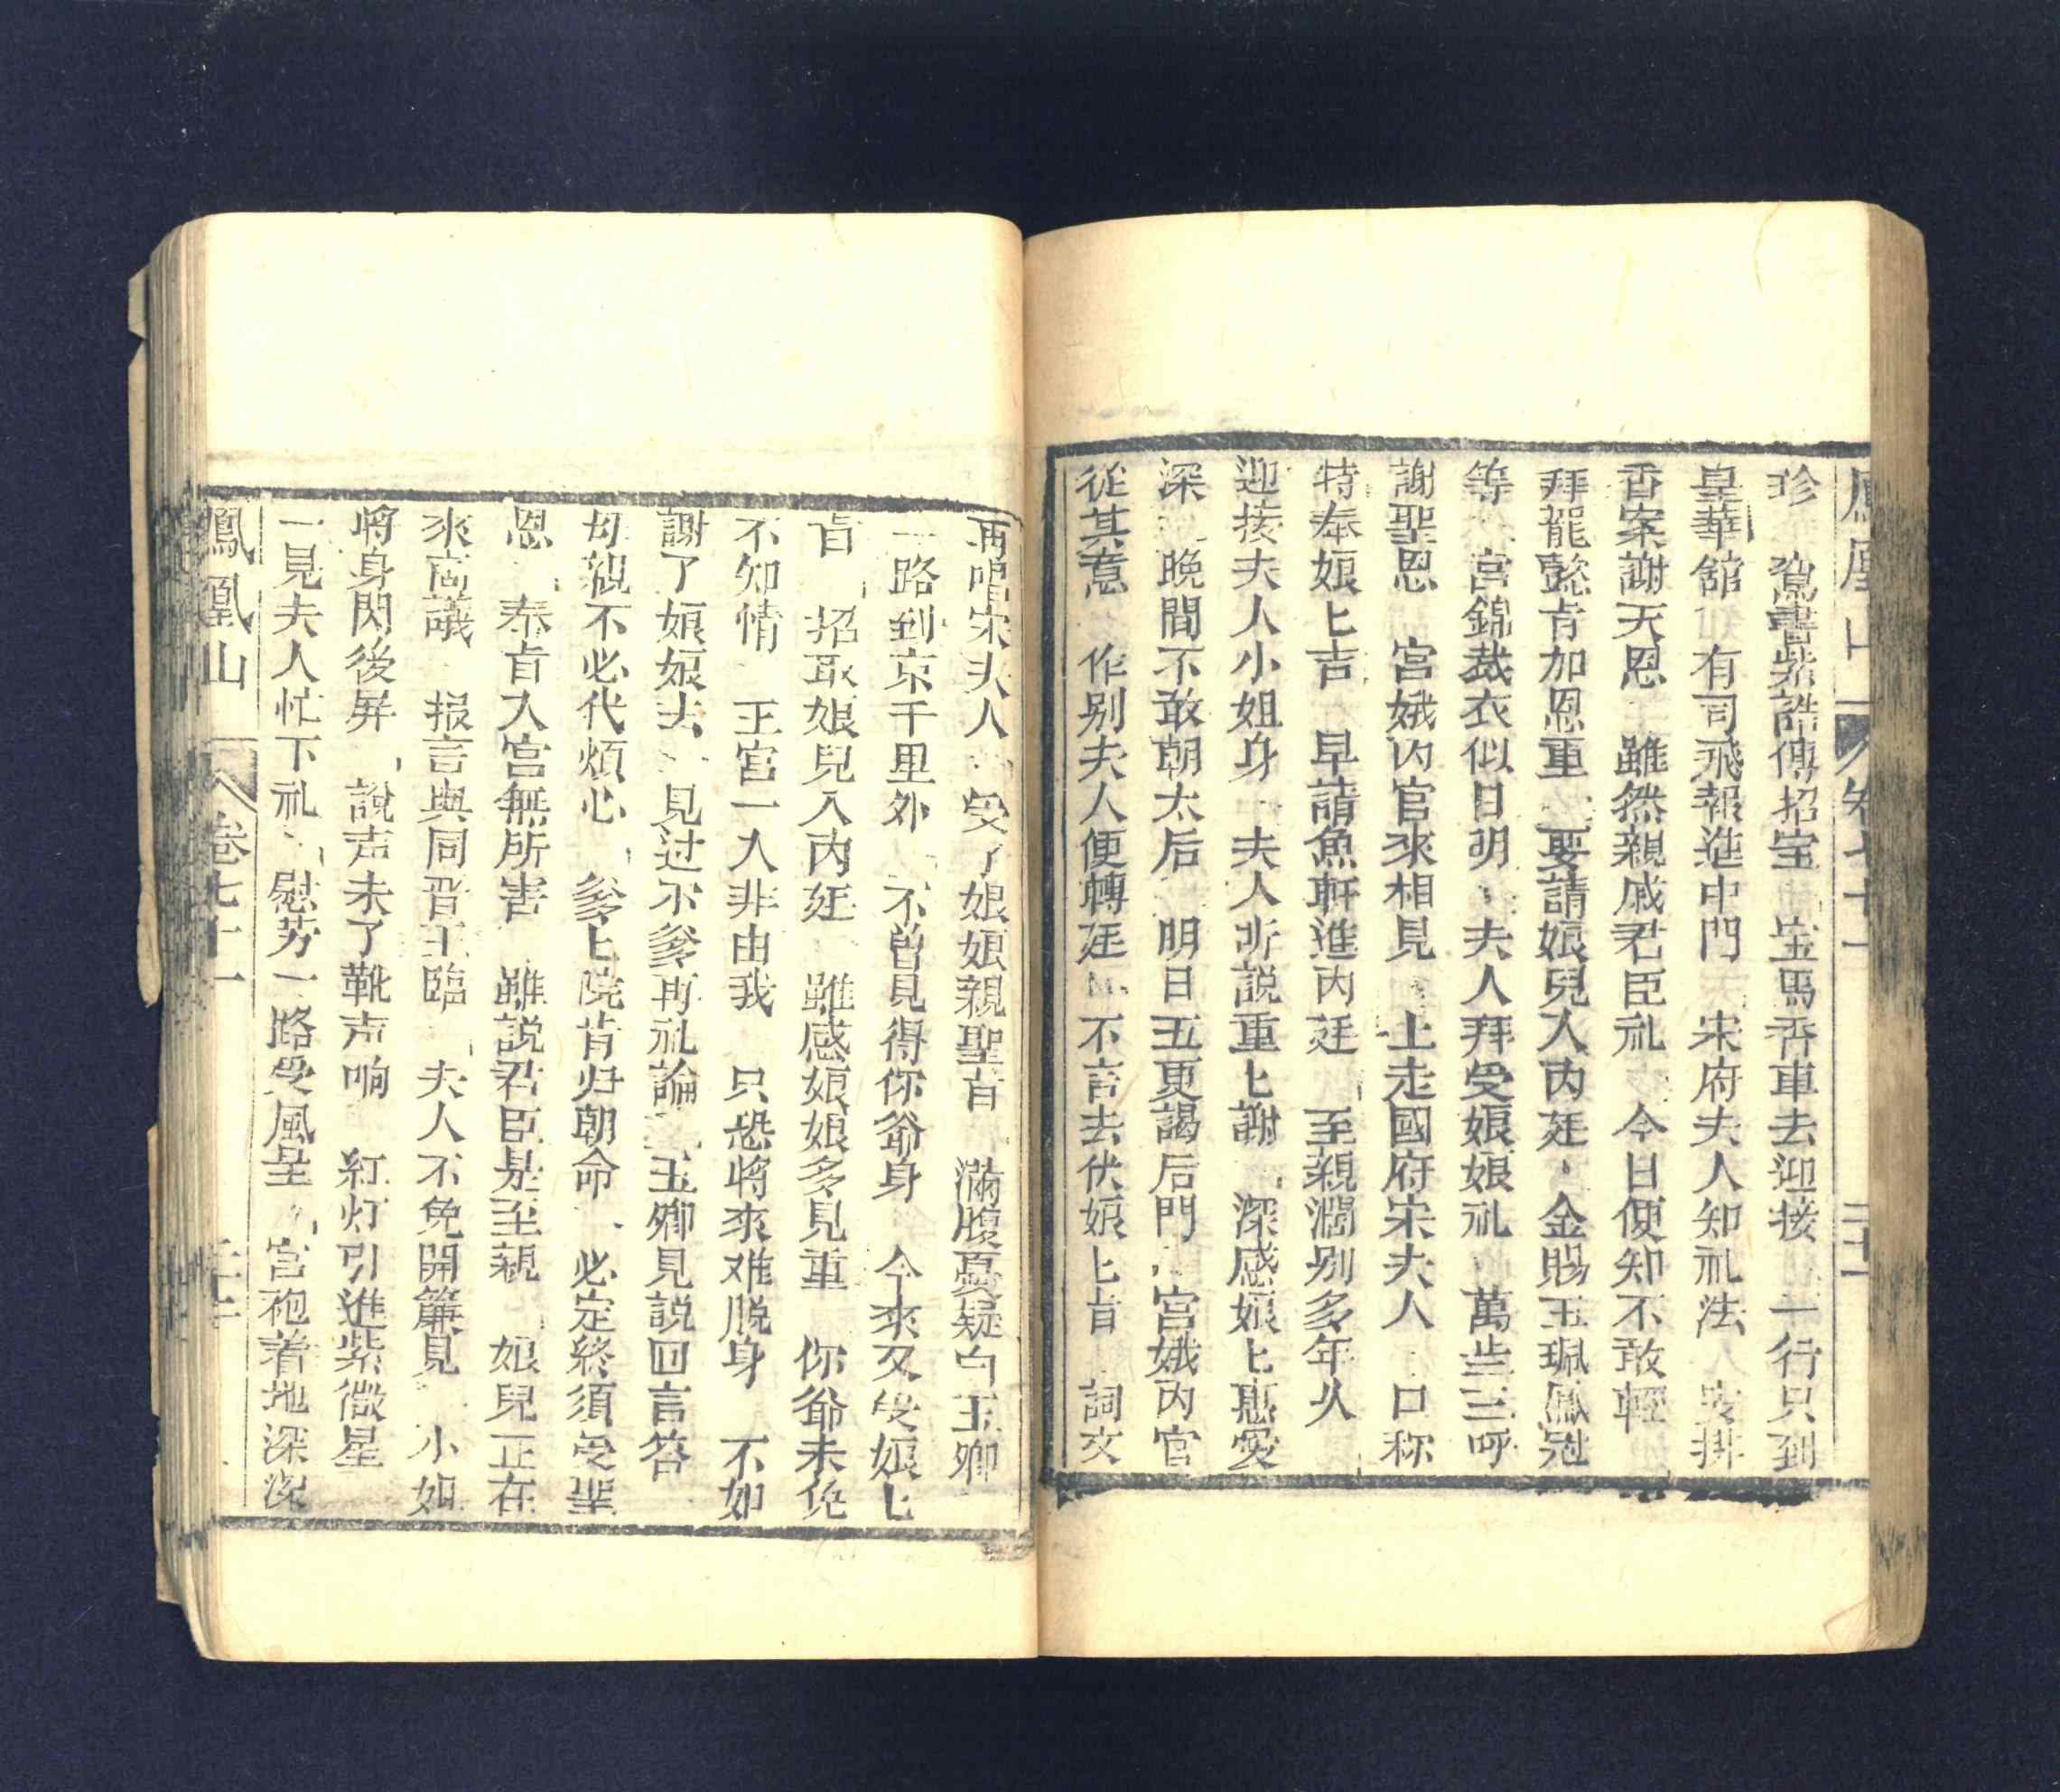 鳳凰山 卷七十一
珍 鸞書紫誥傳招宝 宝馬香車去迎接 一行只到
皇華舘 有司飛報進中門 宋府夫人知礼法 安排
香案謝天恩 雖然親戚君臣礼 今日便知不敢輕
拜龍懿旨加恩重 要請娘兒入内廷 金賜玉珮鳳冠
等 宮錦裁衣似日明 夫人拜受娘娘礼 萬歲三呼
謝聖恩 宮娥内官來相見 上走國府宋夫人 口称
特奉娘匕吉 早請魚軒進内廷 至親濶别多年久
迎接夫人小姐身 夫人听説重匕謝 深感娘匕恵愛
深 晚間不敢朝太后 明日五更謁后門 宮娥内官
從其意 作别夫人便轉廷 不言去伏娘匕旨 詞文
再唱宋夫人 受了娘娘親聖旨 滿腹憂疑白玉卿
一路到京千里外 不曾見得你爺身 今來又受娘匕
旨 招取娘兒入内廷 雖感娘娘多見重 你爺未免
不知情 王宮一入非由我 只恐將來难脱身 不如
謝了娘娘去 見过尔爹再礼論 玉卿見説回言答
母親不必代煩心 爹匕院肯归朝命 必定終須受聖
恩 奉旨入宮無所害 雖説君臣是至親 娘兒正在
來商議 报言與同晋王臨 夫人不免開簾見 小如
將身閃後屏 說声未了靴声响 紅灯引進紫微星
一見夫人忙下礼 慰劳一路受風尘 宮袍着地深深
鳳凰山 卷七十一